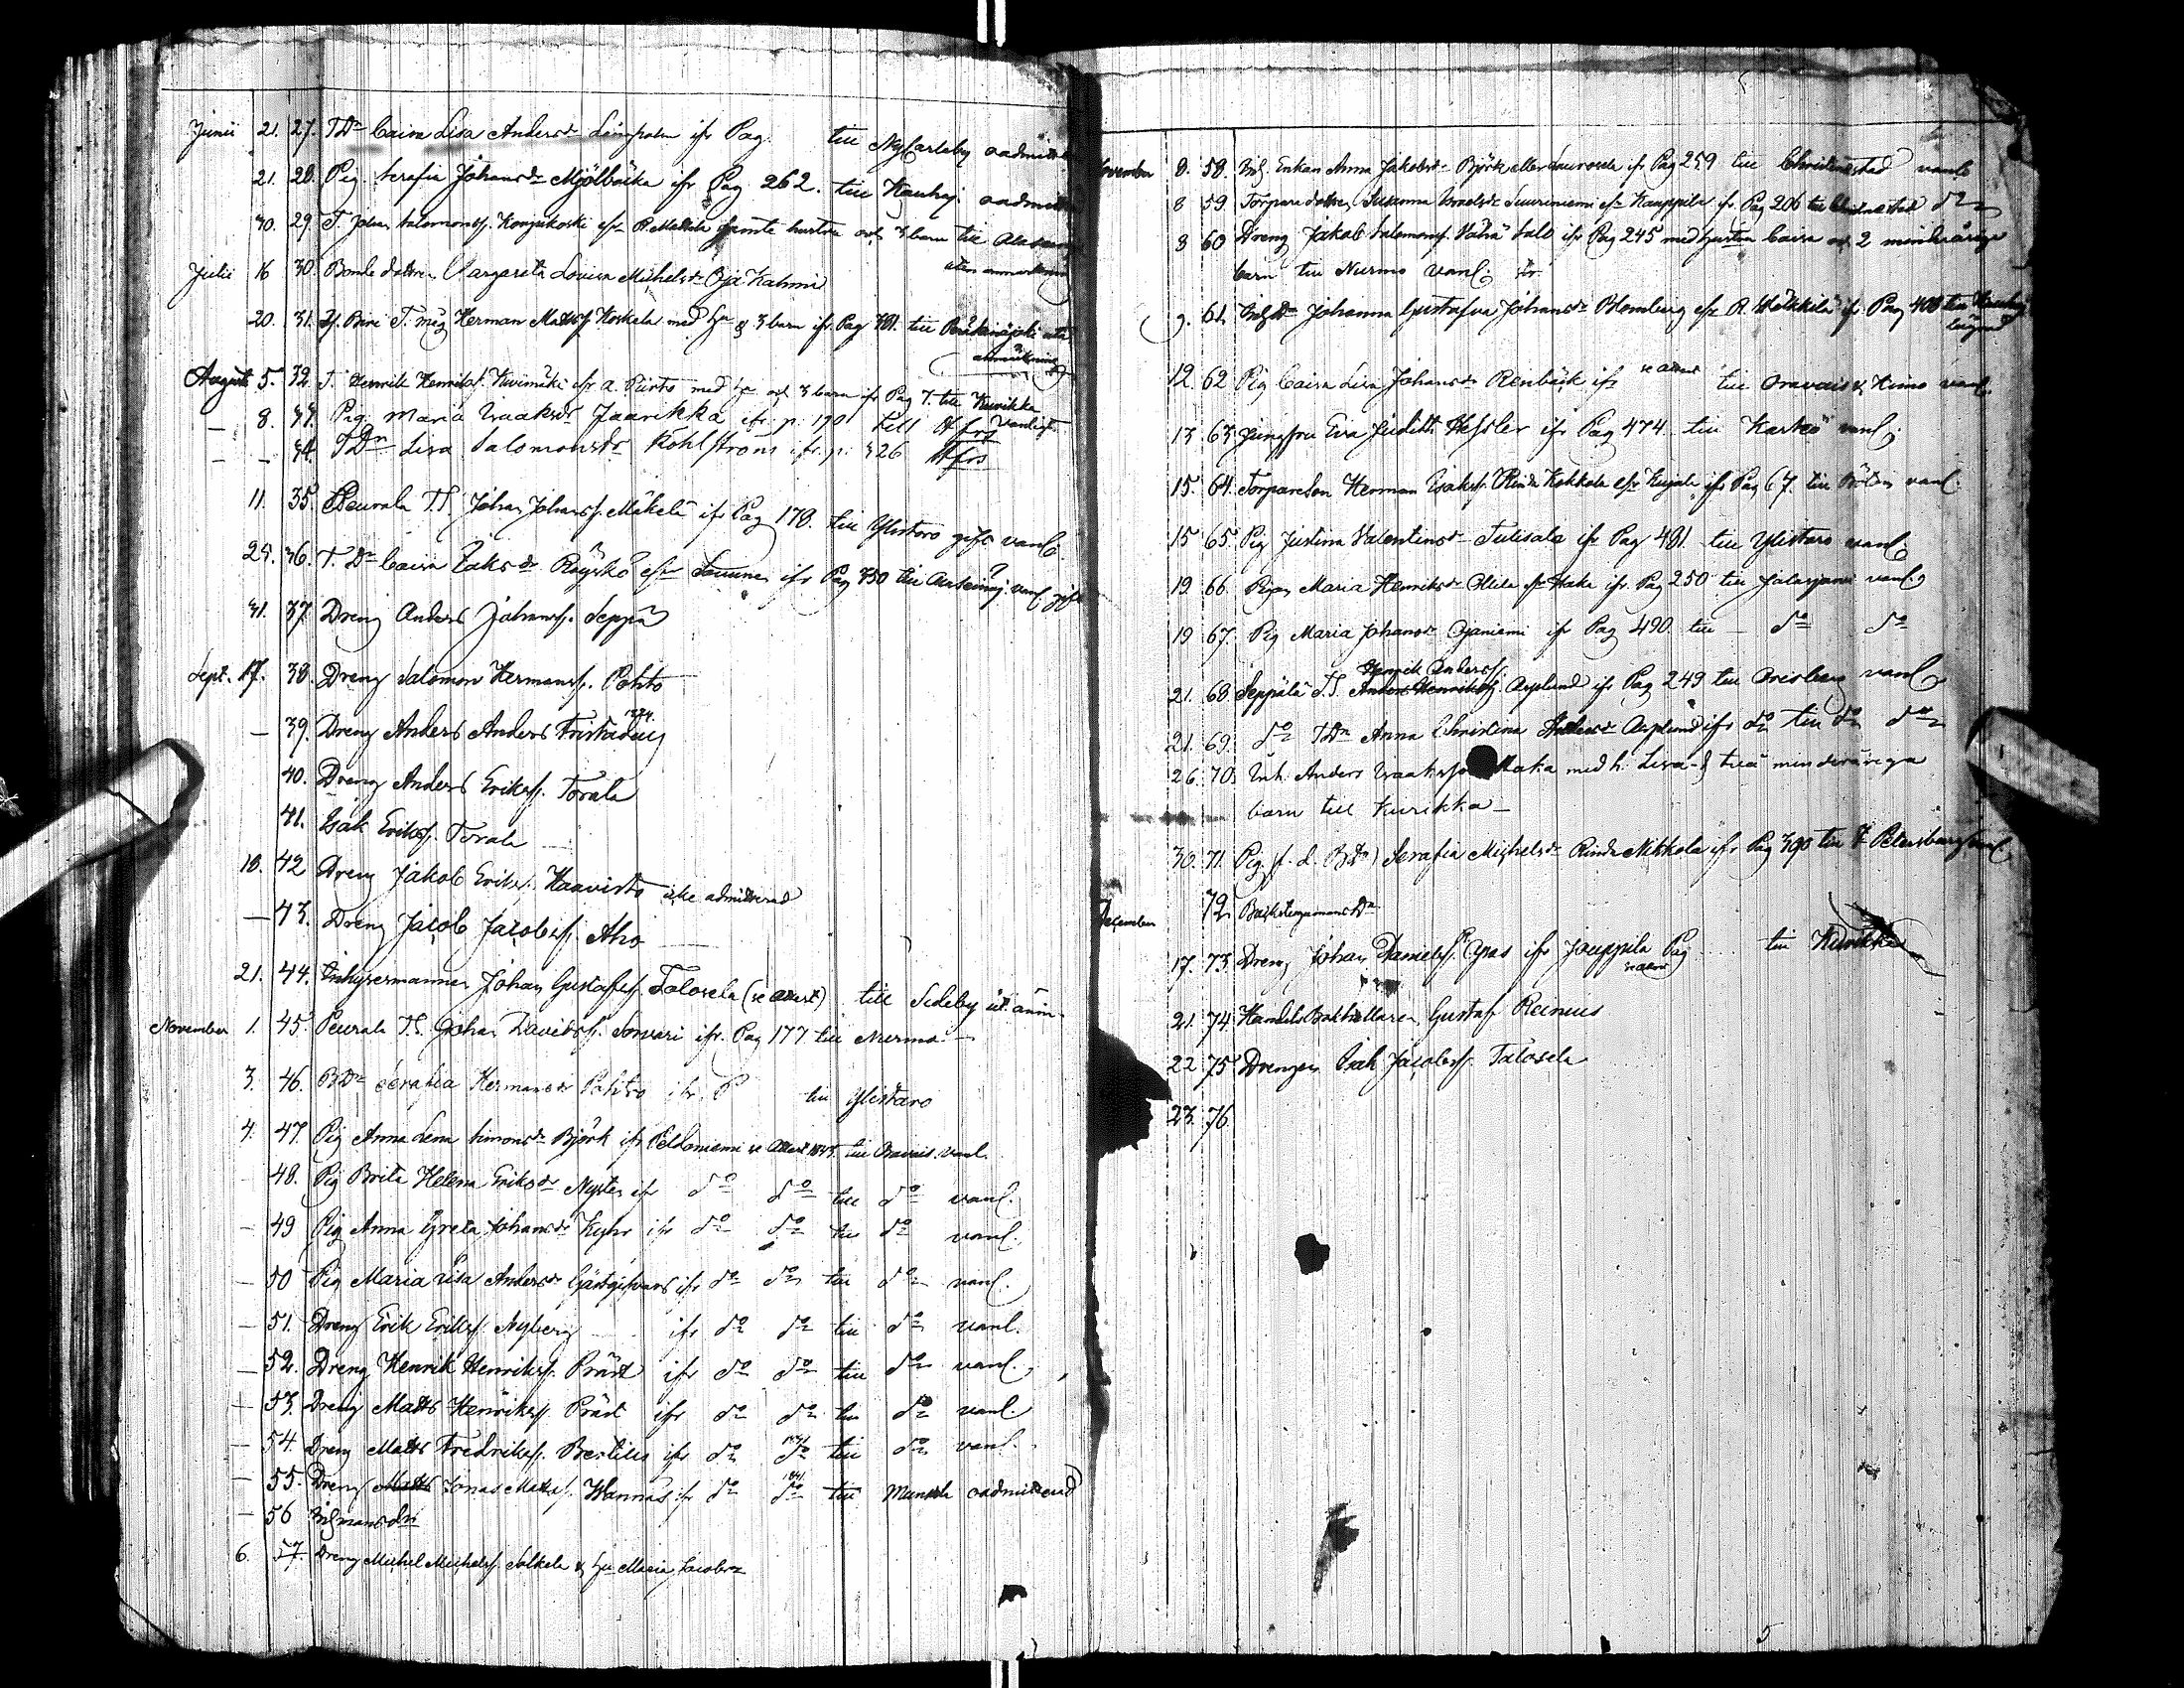 Junii 21. 27. TDr Caisa Lisa Andersdr ifr Pag. till NyCarleby oadmitt
21. 28. Pig. Serafia Johansdr Mjölbäcka ifr Pag 262. till Kauhaj. oadmitt
30. 29. T. Johan Salomonss. Konjukoski efr R. Mattila samte hustru och 3 barn till Alavus
utan anmärkning
Julii 16 30. Bonde dottren Margareta Lovisa Michelsdr Oja Kahmi
20. 31. Herman Mattss Koskela med hu & 3 barn ifr Pag 381. till
anmärkning
Augusti 5. 32. T. Henrik Henrikss. Kivimäki efr a. Pirto med hu och 3 barn ifr Pag 7. till Kurikka
vanligt
— 8. 33. Pig. Maria Isaaksdr Jaarikka efr p. 190 till Hfrs
— — 34. TDr Lisa Salomonsdr Kohlström ifr p. 326 Hfrs
11. 35. Peurala T.S. Johan Johanss. Mäkelä ifr Pag 178. till Ylistaro gift vanl.
25. 36. T. Dr Caisa Isaksdr Röyskö efr ifr Pag 350 till vanl gift
31. 37. Dreng Anders Johanss. Seppä
Sept. 17. 38. Dreng Salomon Hermanss. Pohto
1824.
— 39. Dreng Anders Anders
40. Dreng Anders Erikss. Torala
41. Isak Erikss. Torala
18. 42 Dreng Jakob Erikss. Haavisto icke admitterad
— 43. Dreng Jacob Jacobss. Aho
21. 44. Inhysesmannen Johan Gustafss. Talosela (se attest) till Sideby ut. anm.
November 1. 45. Peurala T.S. Johan Davidss. Sorvari ifr. Pag 177 till Nurmo —
3. 46. BDr Serafia Hermansdr Pohto ifr. P till Ylistaro
4. 47. Pig Anna Lena Simonsdr Björk ifr Peldoniemi se attest 1843. till Oravais. vanl.
48. Pig Brita Helena Eriksdr Nysten ifr do do till do vanl.
— 49 Pig Anna Greta Johansdr Kyhr ifr do do till do vanl.
— 50 Pig Maria Lisa Andersdr Gästgifvars ifr do do till do vanl.
— 51. Dreng Erik Erikss. Nyberg ifr do do till do vanl.
— 52. Dreng Henrik Henrikss. Präst ifr do do till do vanl.
— 53. Dreng Matts Henrikss. Präst ifr do do till do vanl.
— 54. Dreng Matts Fredrikss. Bertils ifr do do till do vanl.
1841.
— 55. Dreng Matts Jonas Mattss. Hannas ifr do do till Munsala oadmitterad
— 56
6. 57. Dreng Michel Michelss. Salkela & hu Maria Jacobsdr
November 8. 58. Inh. Enkan Anna Jakobsdr Björk eller Laurosela ifr Pag 259 till Christinestad vanl.
8 59. Torpare dottren Susanna Israelsdr Suuriniemi efr Kauppila ifr Pag 206 till Christinestad do
8 60 Dreng Jakob Salomonss. Vähä Salo ifr Pag 245 med hustru Caisa och 2 minderåriga
barn till Nurmo vanl.
9. 61. Johanna Gustafva Johansdr Blomberg efr R. ifr Pag 408 till Kauhaj
12. 62 Pig Caisa Lisa Johansdr Renbäck ifr se attest till Oravais & Kimo vanl.
13 63. Jungfru Eva Judith Hessler ifr Pag 474 till Kaskö vanl.
15. 64. Torpareson Herman Isakss. Rinta Kokkola efr Kujala ifr Pag 67. till vanl.
15 65. Pig Justina Valentinsdr Tulisalo ifr Pag 481 till Ylistaro vanl.
19. 66. Pigan Maria Henriksdr Ollila efr Haka ifr Pag 250 till Jalasjärvi vanl.
19 67. Pig Maria Johansdr Ojaniemi ifr Pag 490 till — do do
Henrik Anderss.
21. 68 Seppälä T.S. Anders Henrikss. Asplund ifr Pag 249 till Orisberg vanl.
21. 69. do TDr Anna Christina Andersdr Asplund ifr do till do do
26. 70. Inh. Anders Isaakss. Maka med h. Lisa & två minderåriga
barn till Kurikka —
30. 71. Pig (f. d. BDr) Serafia Michelsdr Rinta Nikkola ifr Pag 390 till St Petersburg vanl
December 72. Backstugumans Dr
17. 73. Dreng Johan Danielss. Ojas ifr Jouppila Pag till Kurikka
se attest
21. 74. HandelsBokhållaren Gustaf Reinius
22. 75. Drengen Isak Jacobss. Talosela
23. 76.
5